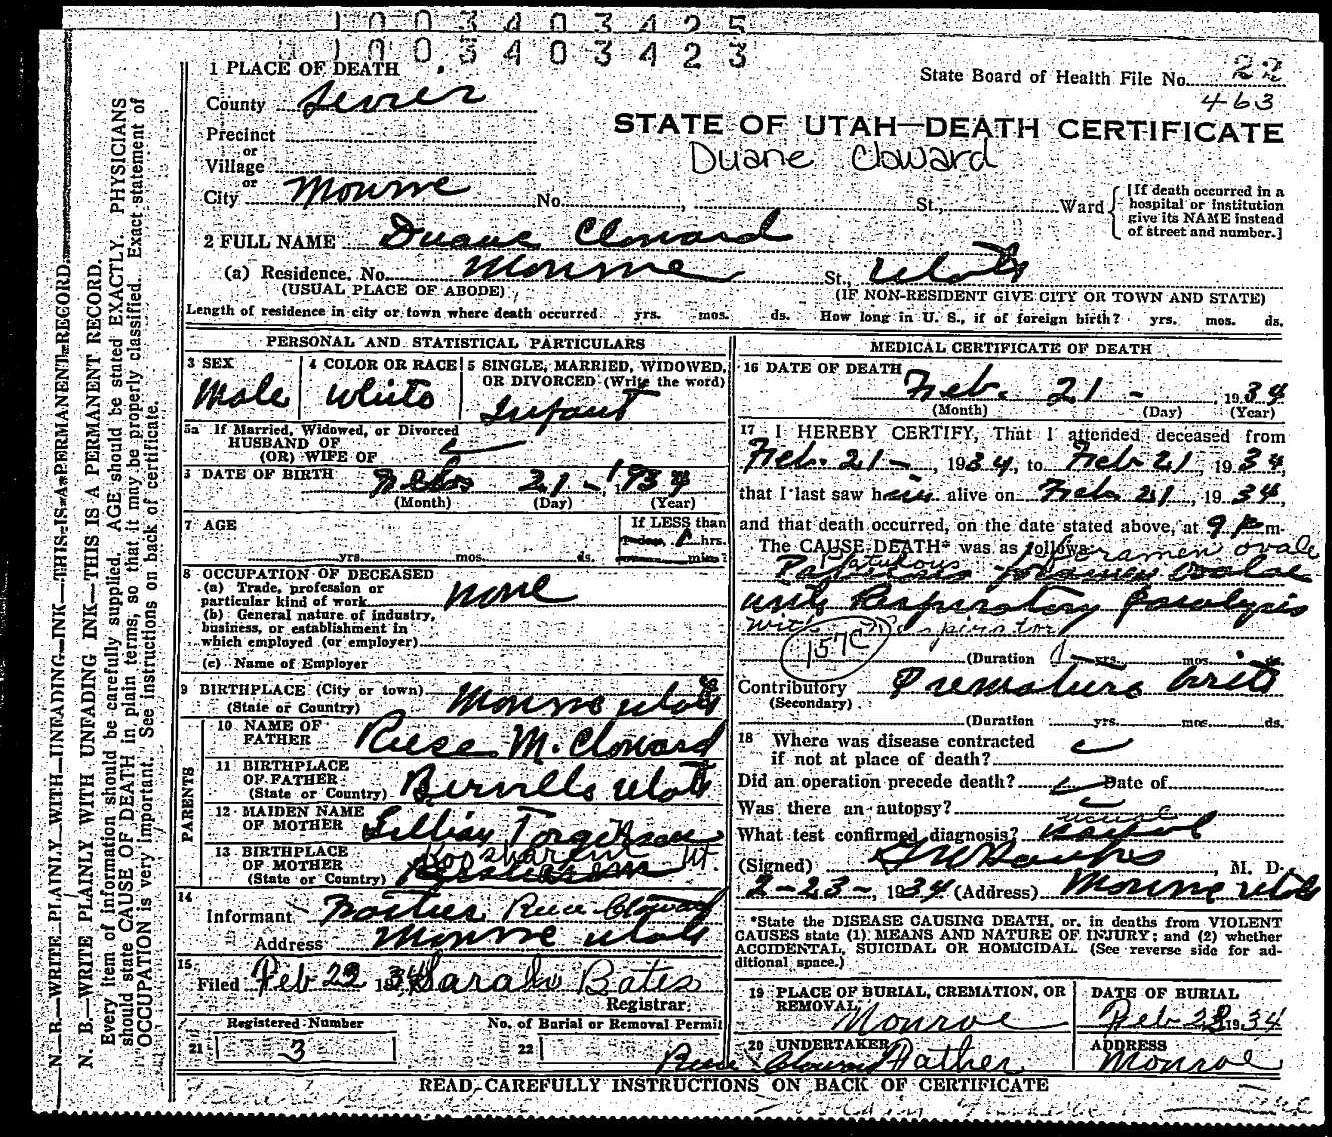 1003403425
1003403423
1 PLACE OF DEATH
State Board of Health File No. 22
463
County Sevier
STATE OF UTAH—DEATH CERTIFICATE
Precinct
or
Duane Cloward
Village
or
City Monroe No. , St., Ward
[If death occurred in a hospital or institution give its NAME instead of street and number.]
2 FULL NAME Duane Cloward
(a) Residence. No. Monroe St., Utah
(USUAL PLACE OF ABODE) (IF NON-RESIDENT GIVE CITY OR TOWN AND STATE)
Length of residence in city or town where death occurred yrs. mos. ds. How long in U. S., if of foreign birth? yrs. mos. ds.
PERSONAL AND STATISTICAL PARTICULARS
3 SEX Male
4 COLOR OR RACE White
5 SINGLE, MARRIED, WIDOWED, OR DIVORCED (Write the word) Infant
5a If Married, Widowed, or Divorced
HUSBAND OF
(OR) WIFE OF
DATE OF BIRTH 21 - 1934
(Month) (Day) (Year)
7 AGE yrs. mos. ds.
If LESS than
1 hrs.
8 OCCUPATION OF DECEASED
(a) Trade, profession or
particular kind of work none
(b) General nature of industry,
business, or establishment in
which employed (or employer)
(c) Name of Employer
9 BIRTHPLACE (City or town)
(State or Country) Monroe Utah
PARENTS
10 NAME OF
FATHER Reese M. Cloward
11 BIRTHPLACE
OF FATHER
(State or Country) Utah
12 MAIDEN NAME
OF MOTHER Torgersen
13 BIRTHPLACE
OF MOTHER
(State or Country) Koosharem Ut.
14
Informant Reese Cloward
Address Monroe Utah
15
Filed Feb 22 34 Sarah Bates
Registrar
Registered Number
21 3
No. of Burial or Removal Permit
22
MEDICAL CERTIFICATE OF DEATH
16 DATE OF DEATH Feb. 21 - 1934
(Month) (Day) (Year)
17 I HEREBY CERTIFY, That I attended deceased from
Feb. 21 -, 1934, to Feb 21, 1934,
that I last saw him alive on Feb. 21, 1934,
and that death occurred, on the date stated above, at 9 P m.
The CAUSE DEATH* was as follows: foramen ovale
Patulous foramen ovale
with Respiratory paralysis
with respiratory
157C
(Duration 1 yrs. mos. ds.
Contributory Premature birth
(Secondary)
(Duration yrs. mos. ds.
18 Where was disease contracted
if not at place of death?
Did an operation precede death? Date of
Was there an autopsy?
What test confirmed diagnosis? usual
(Signed) , M. D.
2-23-, 1934 (Address) Monroe Utah
*State the DISEASE CAUSING DEATH, or, in deaths from VIOLENT
CAUSES state (1) MEANS AND NATURE OF INJURY; and (2) whether
ACCIDENTAL, SUICIDAL OR HOMICIDAL. (See reverse side for ad-
ditional space.)
19 PLACE OF BURIAL, CREMATION, OR
REMOVAL Monroe
DATE OF BURIAL
Feb 1934
20 UNDERTAKER
Reese Cloward Father
ADDRESS
Monroe
READ CAREFULLY INSTRUCTIONS ON BACK OF CERTIFICATE
N. B.—WRITE PLAINLY WITH UNFADING INK—THIS IS A PERMANENT RECORD.
N. B.—WRITE PLAINLY WITH UNFADING INK—THIS IS A PERMANENT RECORD.
Every item of information should be carefully supplied. AGE should be stated EXACTLY. PHYSICIANS
should state CAUSE OF DEATH in plain terms, so that it may be properly classified. Exact statement of
OCCUPATION is very important. See instructions on back of certificate.